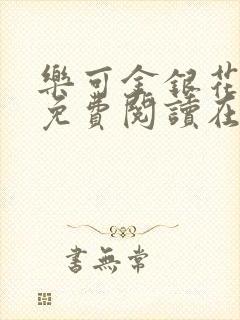 樂可金銀花
免費閱讀在
書無常